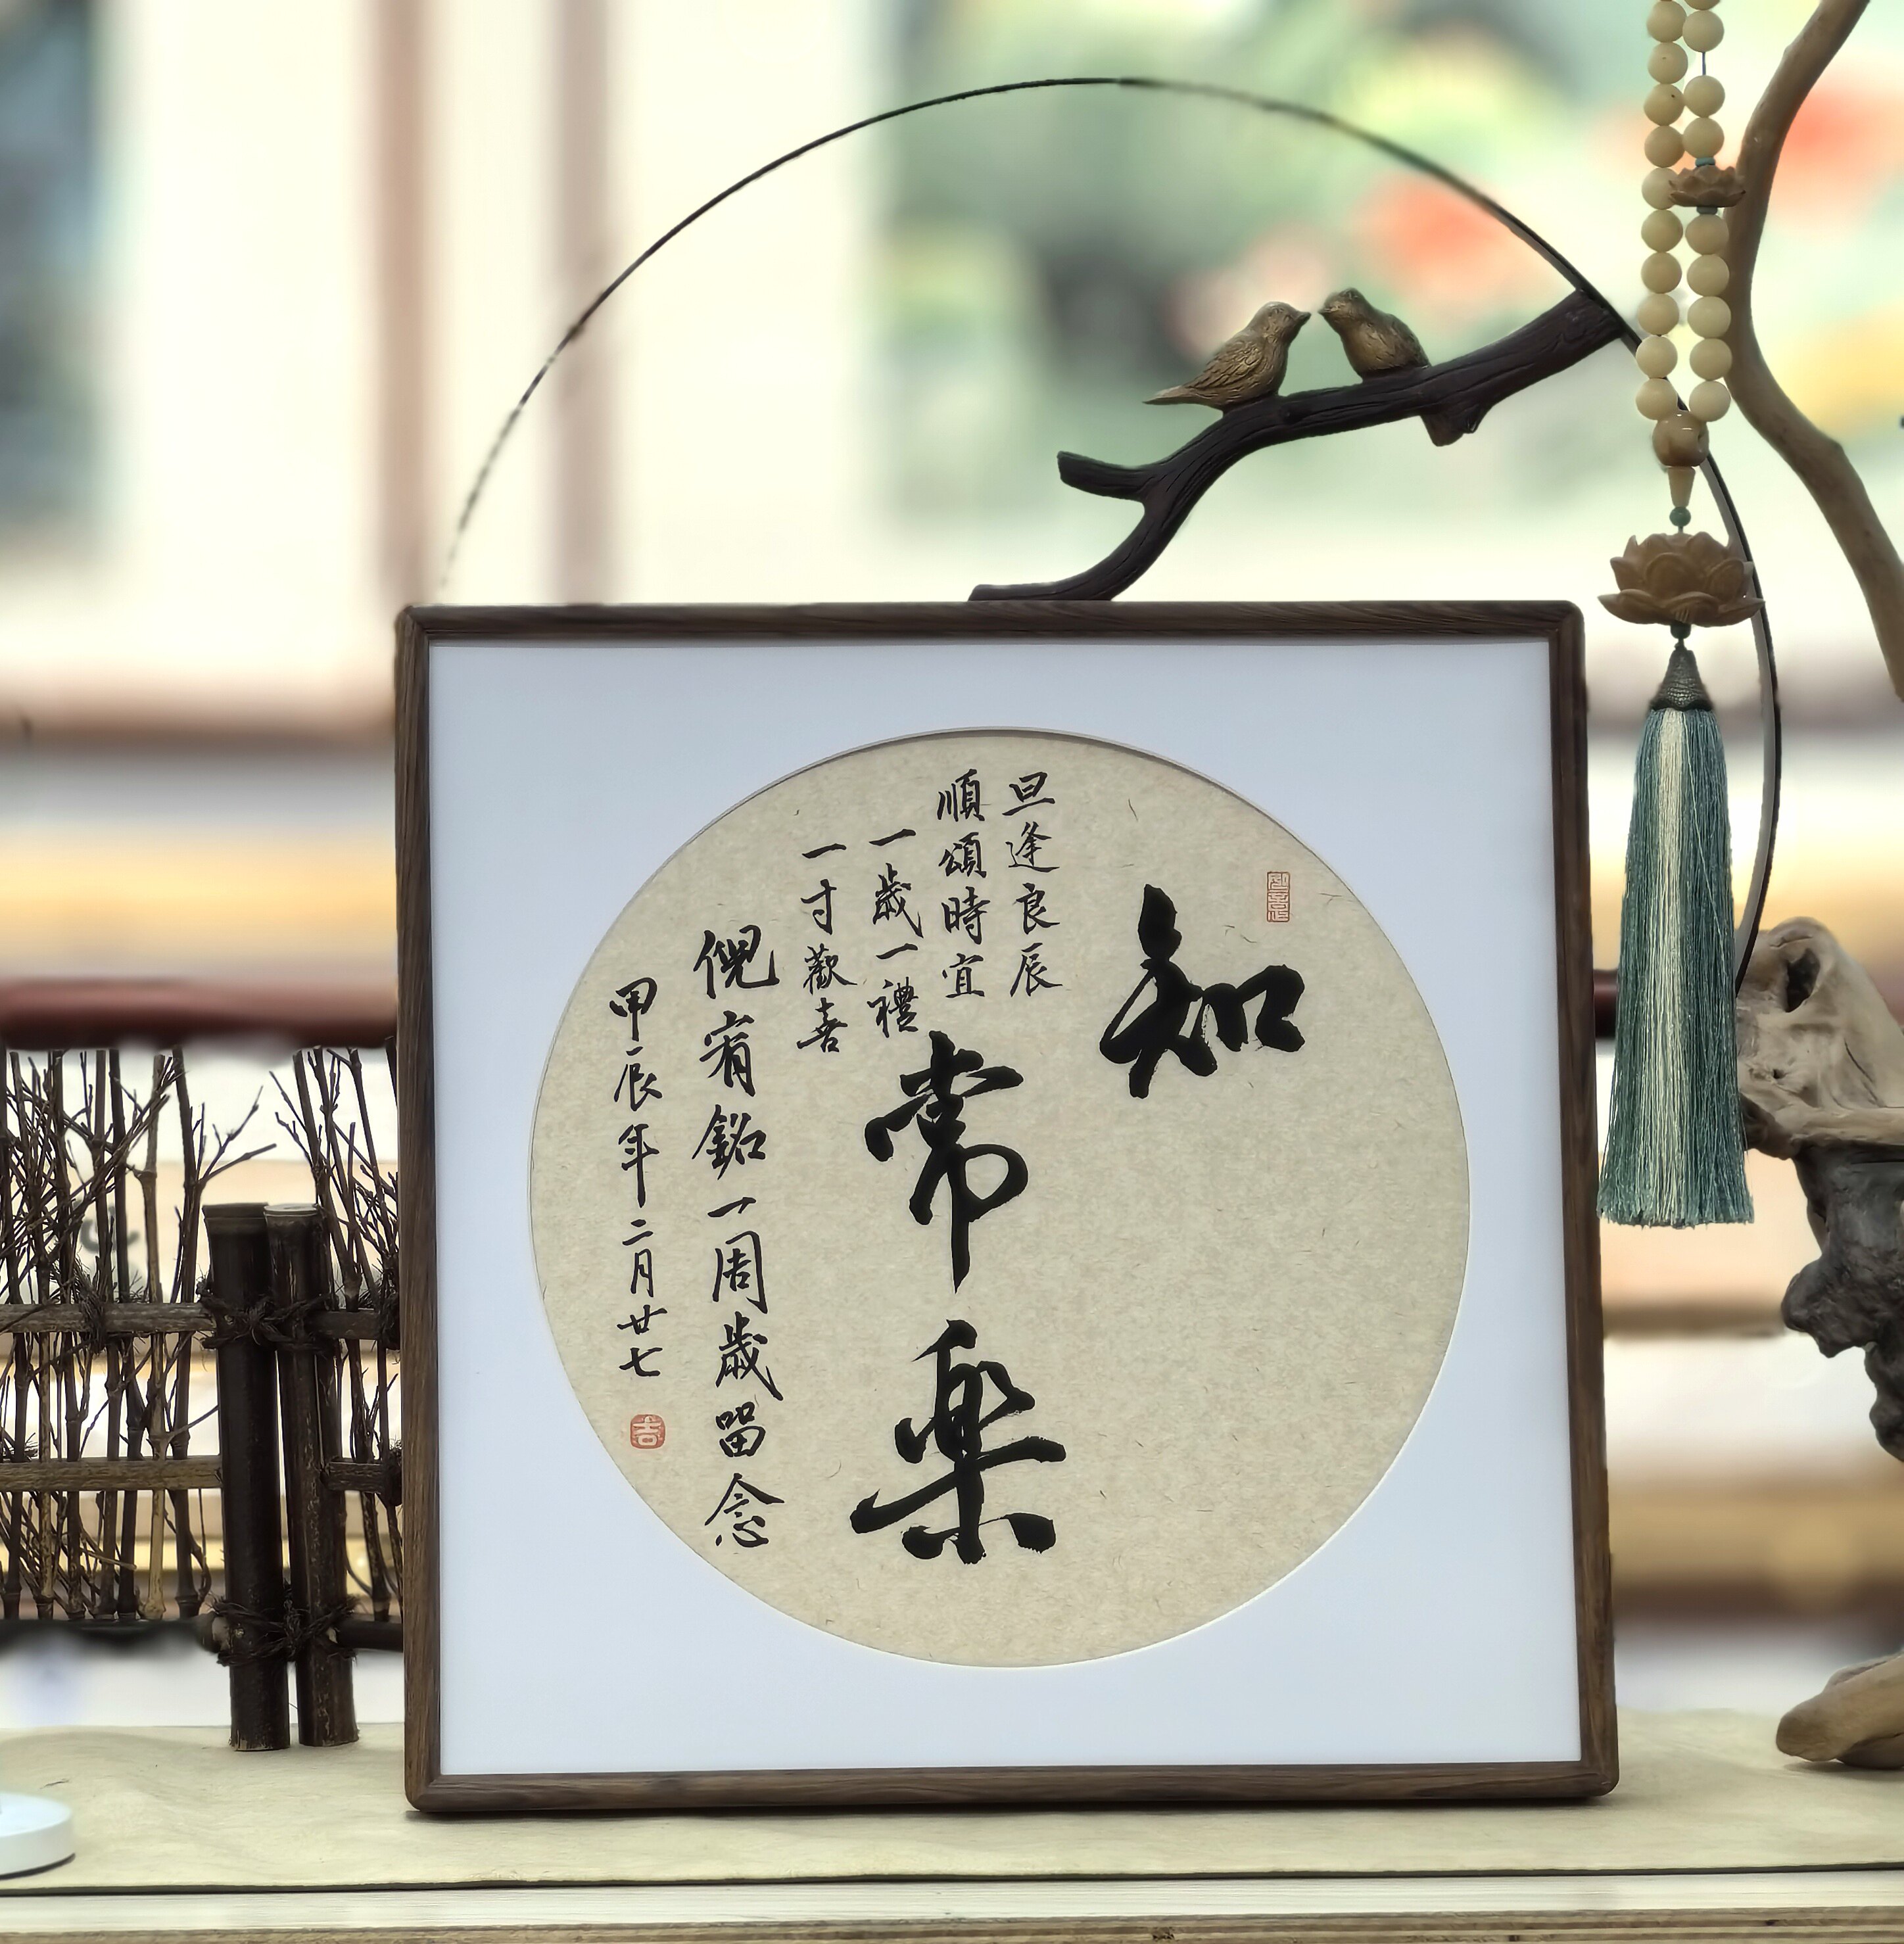 知
常樂
旦逢良辰
順頌時宜
一歲一禮
一寸歡喜
倪宥銘一周歲留念
甲辰年二月廿七
吉